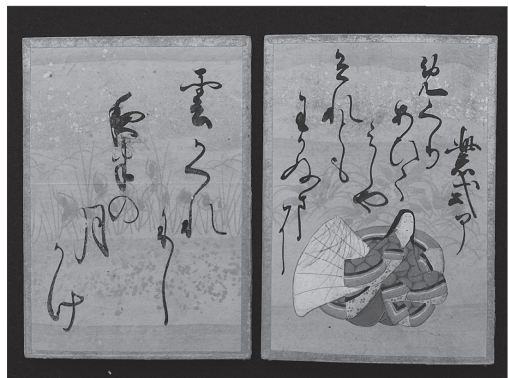 紫式部
めくり
あひて
みしや
それとも
わかぬまに
雲かくれ
にし
夜半の
月
かけ